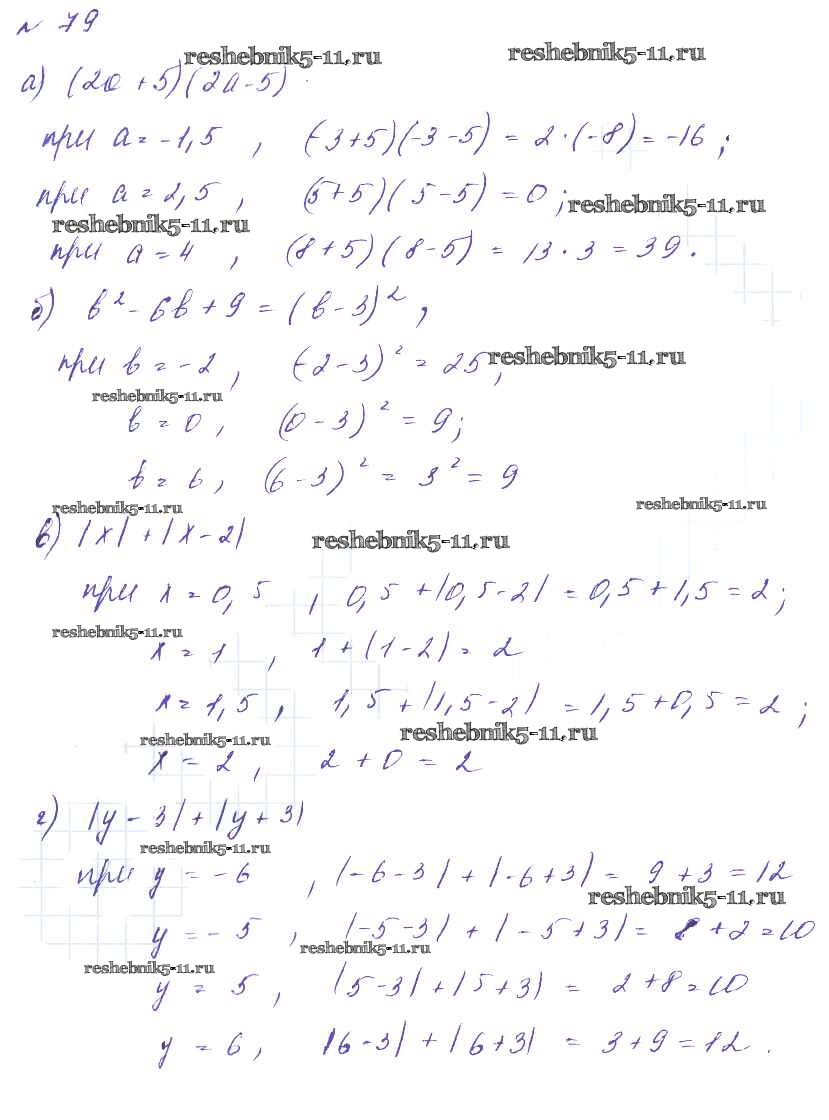 № 79
reshebnik5-11.ru reshebnik5-11.ru
а) (2a + 5)(2a - 5)
при a = -1,5 , (-3+5)(-3-5) = 2·(-8) = -16 ;
при a = 2,5 , (5+5)(5-5) = 0 ; reshebnik5-11.ru
reshebnik5-11.ru
при a = 4 , (8+5)(8-5) = 13·3 = 39.
б) b² - 6b + 9 = (b - 3)² ,
при b = -2 , (-2-3)² = 25 , reshebnik5-11.ru
reshebnik5-11.ru
b = 0 , (0-3)² = 9 ;
b = 6 , (6-3)² = 3² = 9
reshebnik5-11.ru reshebnik5-11.ru
в) |x| + |x-2| reshebnik5-11.ru
при x = 0,5 , 0,5 + |0,5-2| = 0,5 + 1,5 = 2 ;
reshebnik5-11.ru
x = 1 , 1 + (1-2) = 2
x = 1,5 , 1,5 + |1,5-2| = 1,5+0,5 = 2 ;
reshebnik5-11.ru reshebnik5-11.ru
x = 2 , 2 + 0 = 2
г) |y - 3| + |y + 3|
reshebnik5-11.ru
при y = -6 , |-6-3| + |-6+3| = 9 + 3 = 12
reshebnik5-11.ru
y = -5 , |-5-3| + |-5+3| = 8 + 2 = 10
reshebnik5-11.ru
reshebnik5-11.ru
y = 5 , |5-3| + |5+3| = 2+8 = 10
y = 6 , |6-3| + |6+3| = 3+9 = 12 .